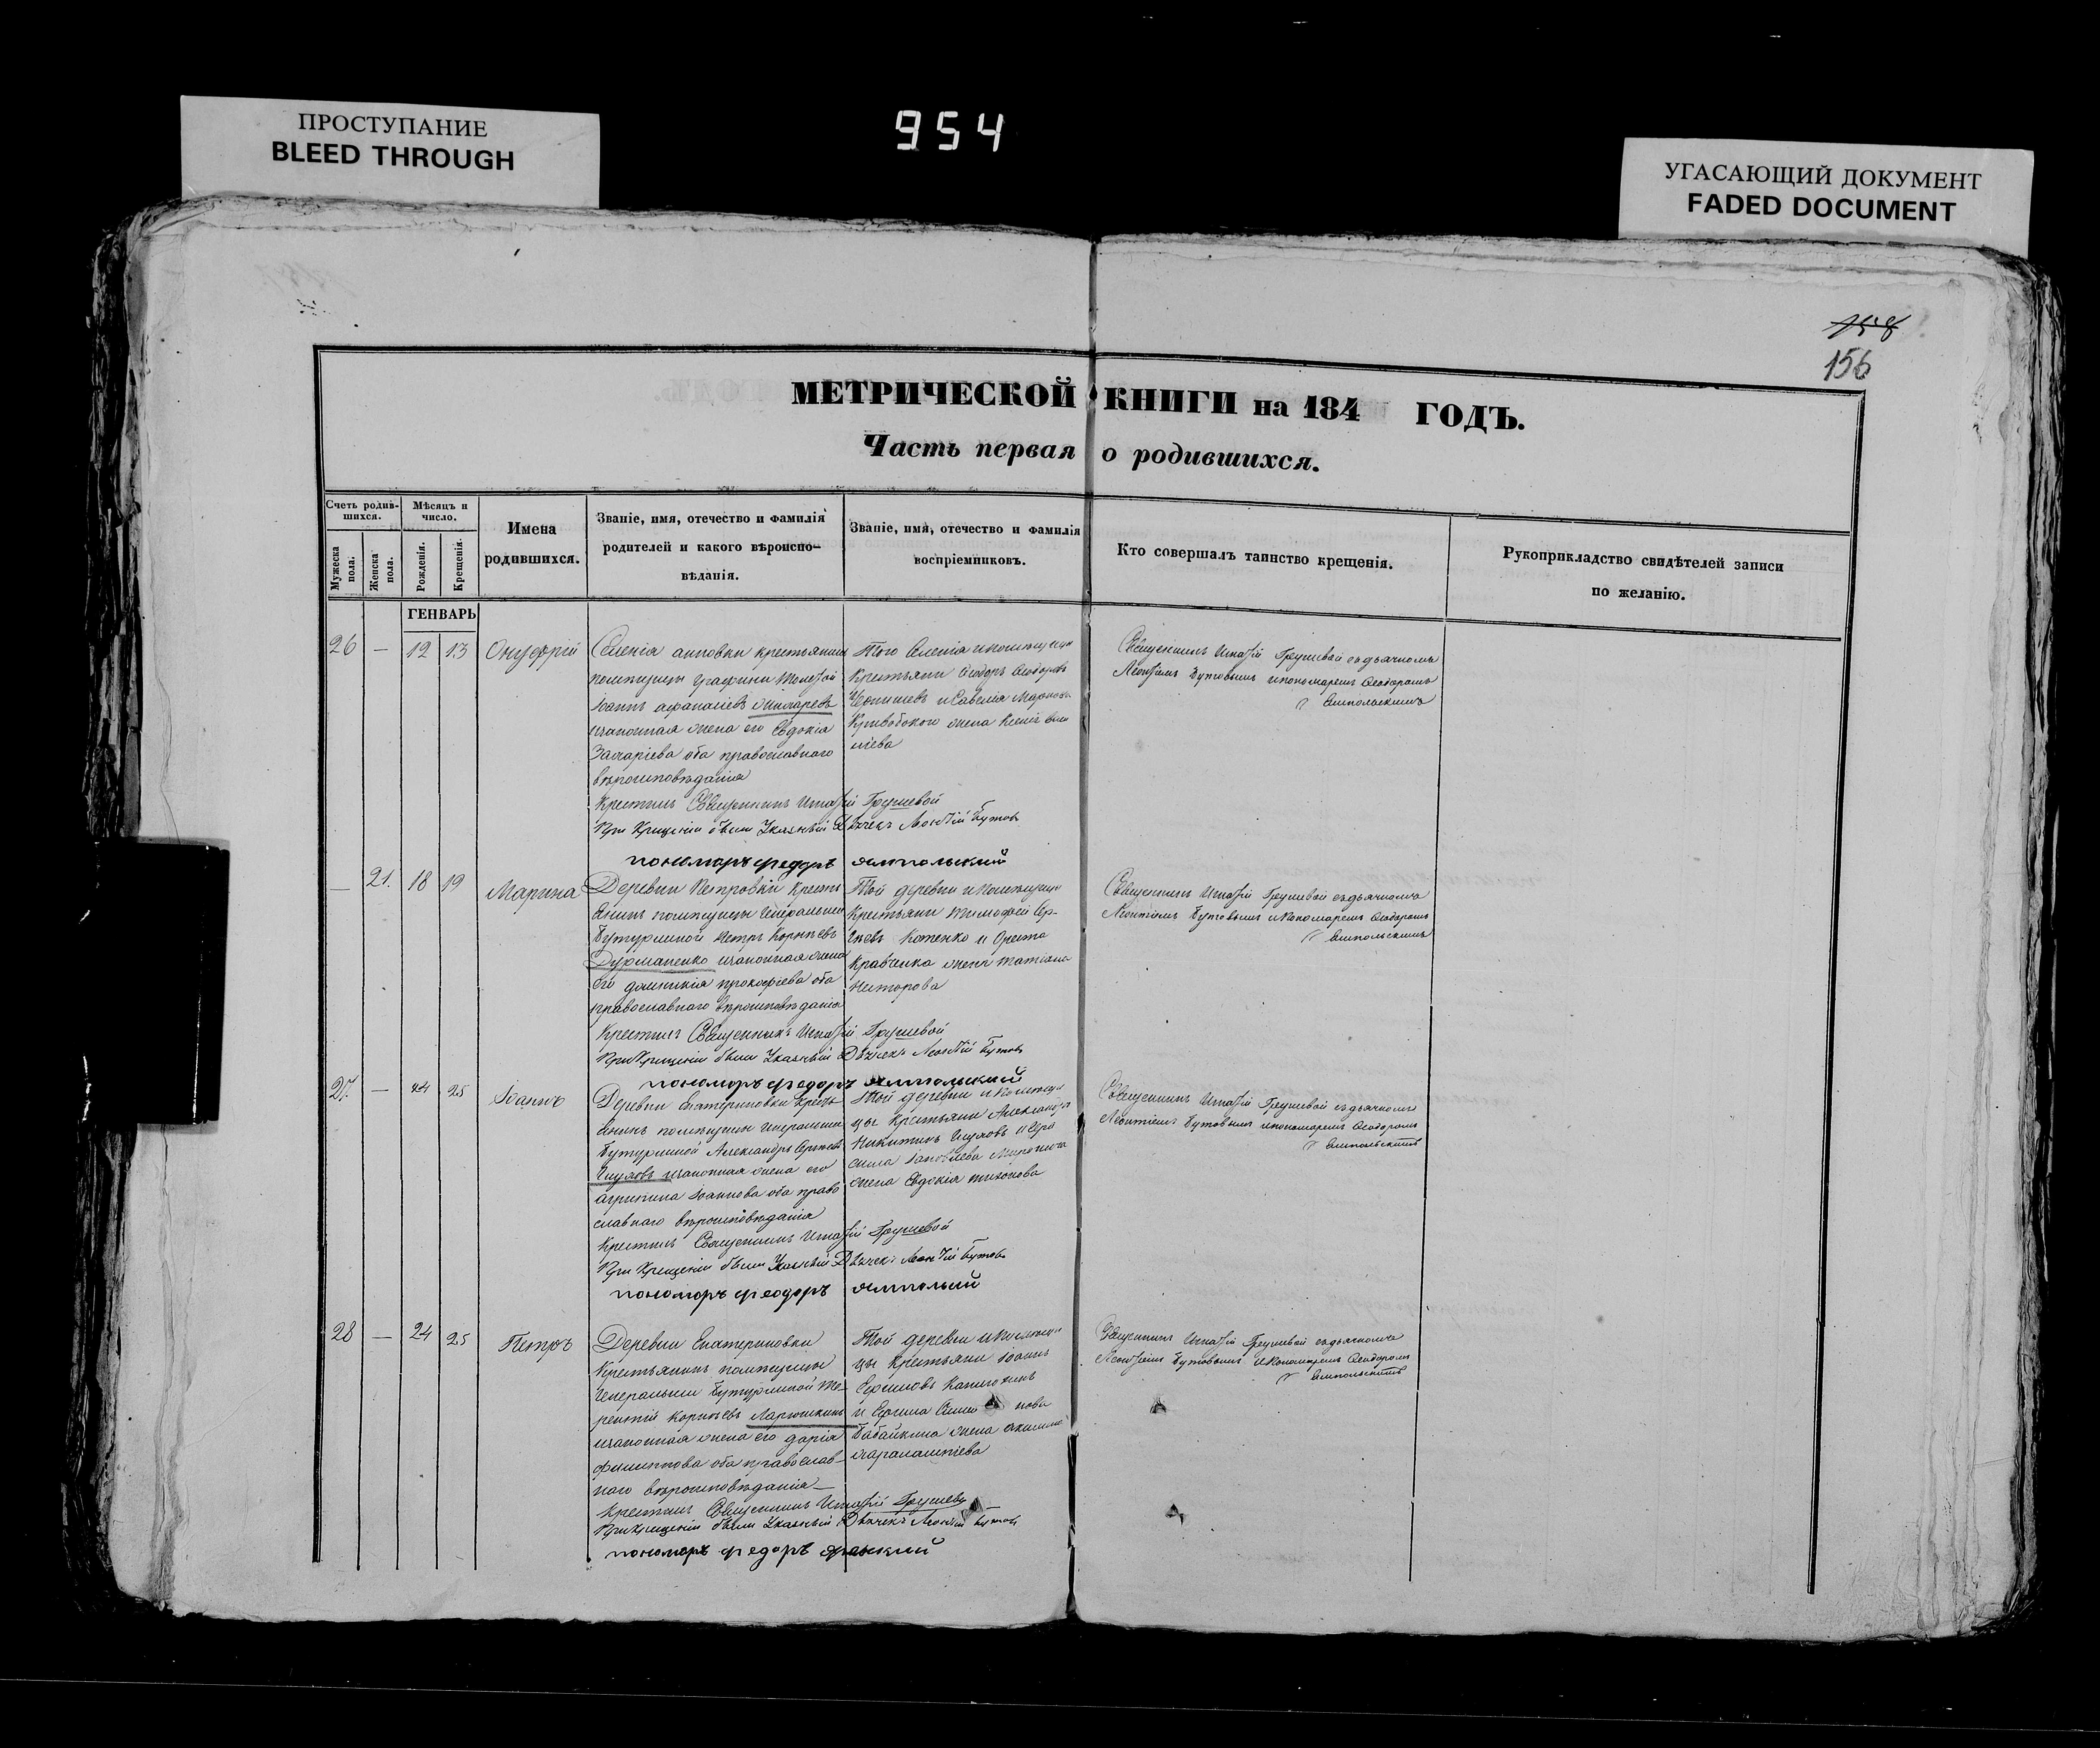 ПРОСТУПАНИЕ
BLEED THROUGH
954
УГАСАЮЩИЙ ДОКУМЕНТ
FADED DOCUMENT
158
156
МЕТРИЧЕСКОЙ КНИГИ на 184 ГОДЪ.
Часть первая о родившихся.
Счетъ родив-
шихся.
Мужеска
пола.
Женска
пола.
Мѣсяцъ и
число.
Рожденія.
Крещенія.
Имена
родившихся.
Званіе, имя, отечество и фамилія
родителей и какого вѣроиспо-
вѣданія.
Званіе, имя, отечество и фамилія
воспріемниковъ.
Кто совершалъ таинство крещенія.
Рукоприкладство свидѣтелей записи
по желанію.
ГЕНВАРЬ
26 — 12 13 Онуфрій
крестьянинъ
помѣщицы Графини
Іоаннъ Афанасіевъ
законная жена его Евдокія
Захаріева оба православнаго
вѣроисповѣданія
Крестилъ Священникъ Игнатій Грушевой
При Крещеніи были Указный Дьячекъ Леонтій Бутовъ
пономаръ федоръ ямпольский
Того Селенія и помѣщицы
Крестьяне Феодоръ Феодоровъ
жена
Священникъ Игнатій Грушевой съ дьячкомъ
Леонтіемъ Бутовымъ и пономаремъ Феодоромъ
Ямпольскимъ
— 21. 18 19 Марина
Деревни Петровки Кресть
янинъ помѣщицы Генеральши
Бутурлиной Петръ Корнѣевъ
Дурманенко законная жена
его прокофіева оба
православнаго вѣроисповѣданія
Крестилъ Священникъ Игнатій Грушевой
При Крещеніи были Указный Дьячекъ Леонтій Бутовъ
пономоръ федоръ ямпольский
Той деревни и помѣщицы
Крестьяне Тимофей Сер-
гѣевъ Котенко и
Кравченка жена Татіана
Священникъ Игнатій Грушевой съ дьячкомъ
Леонтіемъ Бутовымъ и пономаремъ Феодоромъ
Ямпольскимъ
27. — 24 25 Іоаннъ
Деревни Екатериновки Кресть
янинъ помѣщицы Генеральши
Бутурлиной Александръ Сергѣевъ
законная жена его
агрипина Іоаннова оба право
славнаго вѣроисповѣданія
Крестилъ Священникъ Игнатій Грушевой
При Крещеніи были Указный Дьячекъ Леонтій Бутовъ
пономоръ феодоръ
Той деревни и помѣщи
цы Крестьяне Александръ
Никитинъ
жена Евдокія тихонова
Священникъ Игнатій Грушевой съ дьячкомъ
Леонтіемъ Бутовымъ и пономаремъ Феодоромъ
Ямпольскимъ
28 — 24 25 Петръ
Деревни Екатериновки
Крестьянинъ помѣщицы
Генеральши Бутурлиной Те-
рентій Корнѣевъ Ларюшкинъ
законная жена его дарія
филиппова оба православ-
наго вѣроисповѣданія
Крестилъ Священникъ Игнатій
При Крещеніи были Указный Дьячекъ Леонтій Бутовъ
пономаръ федоръ
Той деревни и помѣщи
цы Крестьяне Іоаннъ
Ефимовъ
Бабайкина жена
Священникъ Игнатій Грушевой съ дьячкомъ
Леонтіемъ Бутовымъ и пономаремъ Феодоромъ
Ямпольскимъ